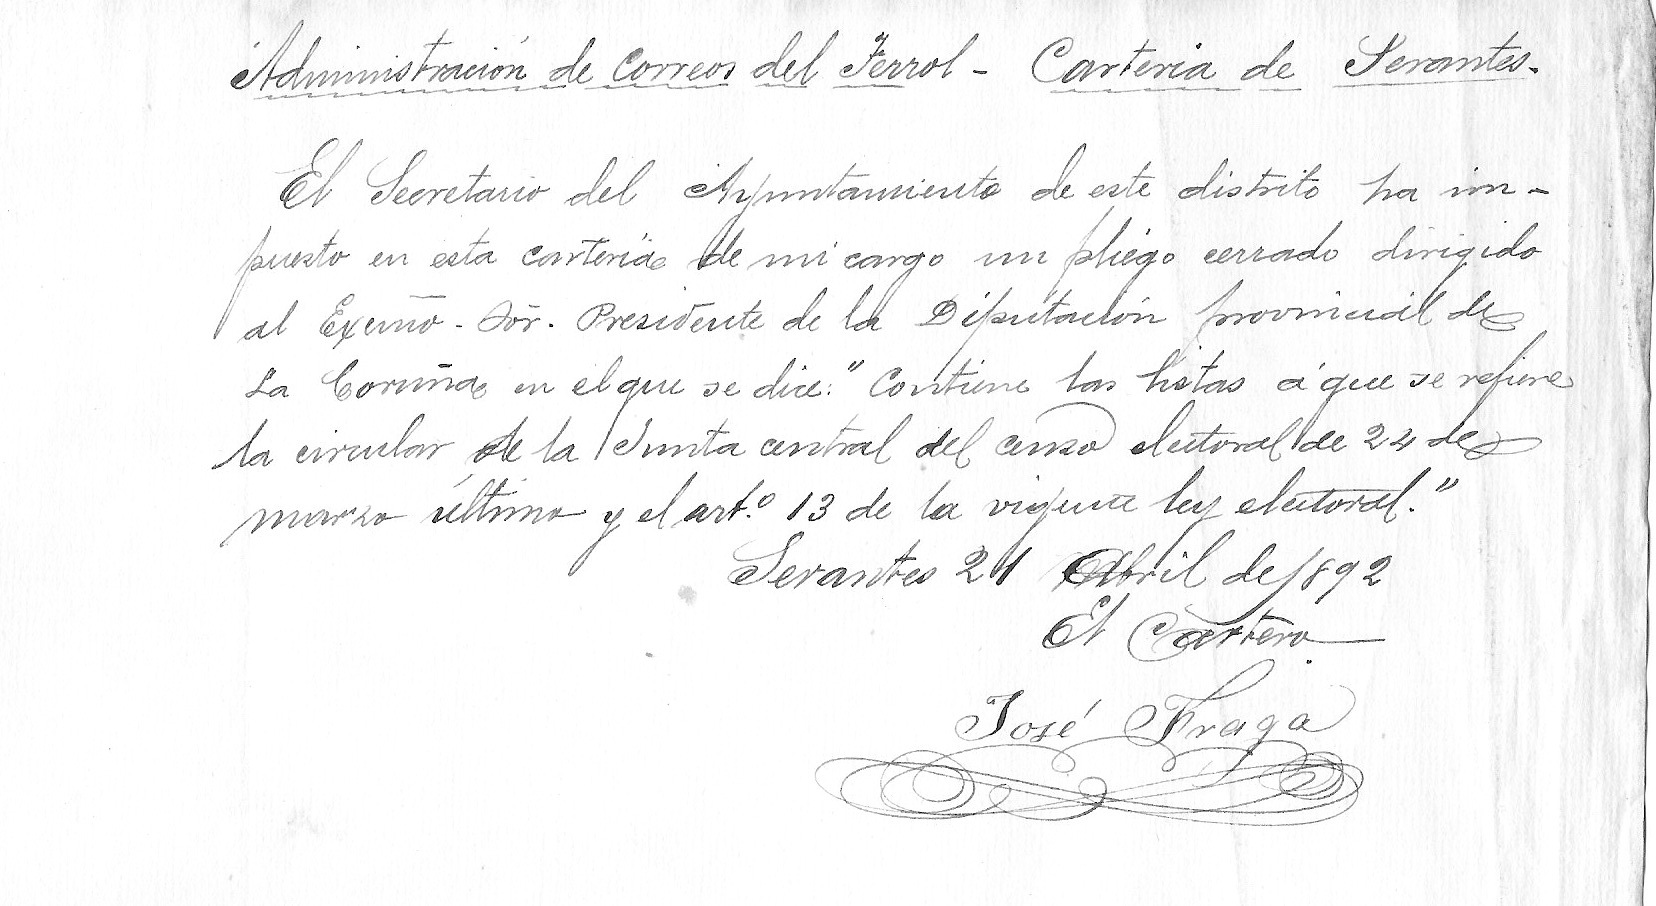 Administración de Correos del Ferrol - Carteria de Serantes.
El Secretario del Ayuntamiento de este distrito ha im-
puesto en esta carteria de mi cargo un pliego cerrado dirigido
al Excmo. Sór. Presidente de la Diputación provincial de
La Coruña en el que se dice: "Contiene las listas á que se refiere
la circular de la Junta central del censo electoral de 24 de
marzo último y el art.º 13 de la vigente ley electoral."
Serantes 21 Abril de 1892
El Cartero
José Fraga